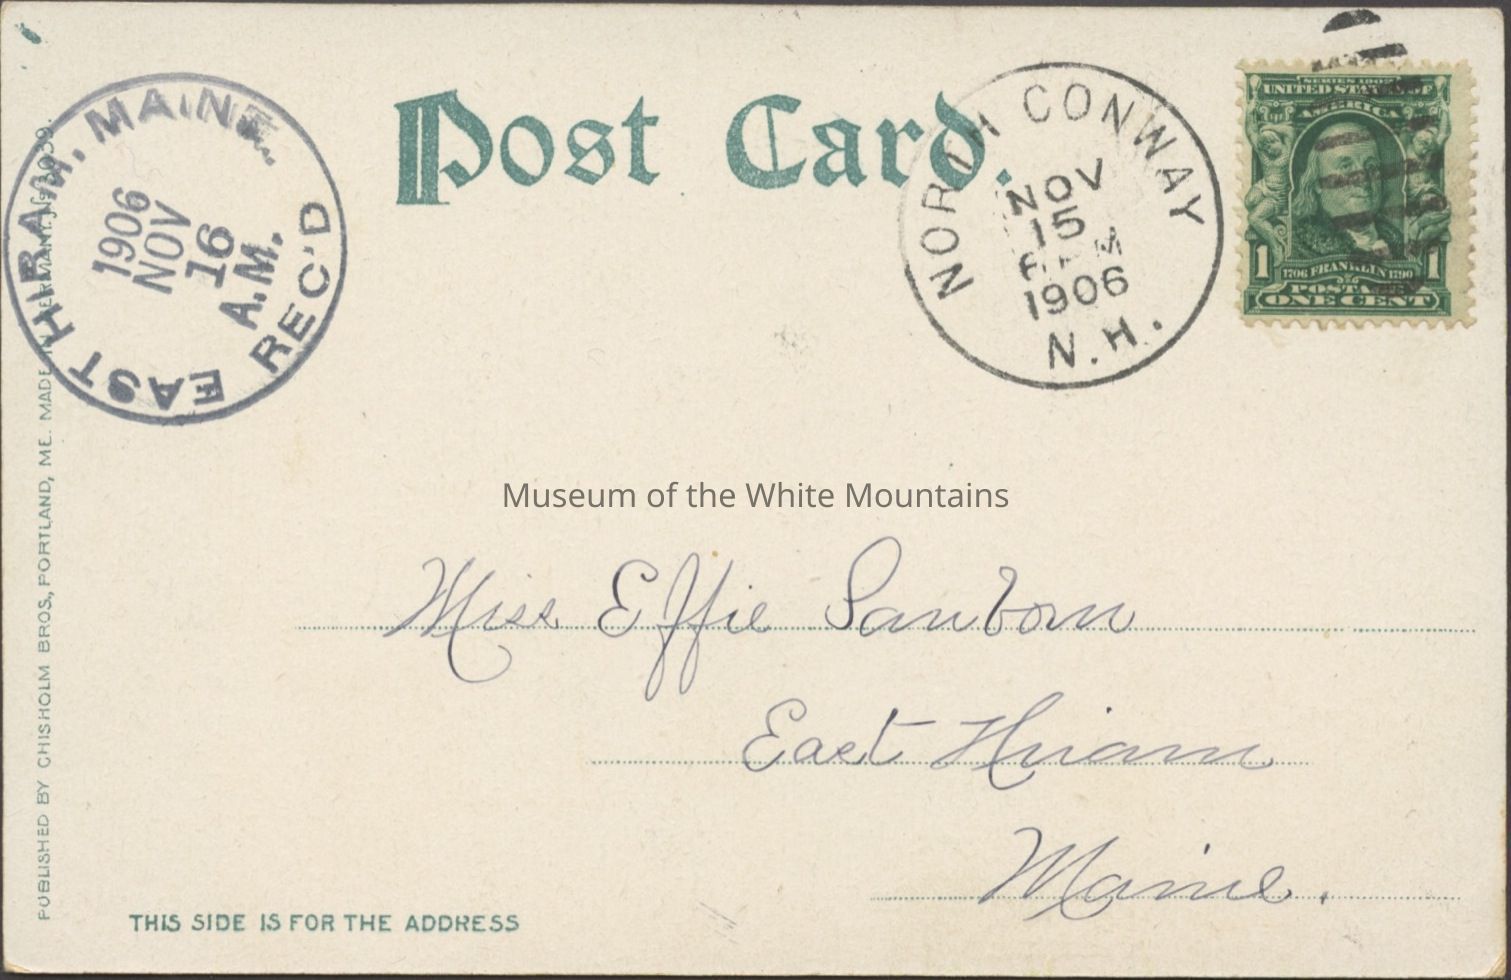 Post Card.
EAST HIRAM, MAINE.
1906
NOV
16
A.M.
REC'D
NORTH CONWAY
NOV
15
1906
N.H.
SERIES 1902
UNITED STATES OF
AMERICA
1706 FRANKLIN 1790
1 1
POSTAGE
ONE CENT
Museum of the White Mountains
Miss Effie Sanborn
East Hiram
Maine.
PUBLISHED BY CHISHOLM BROS., PORTLAND, ME. MADE IN GERMANY.
THIS SIDE IS FOR THE ADDRESS